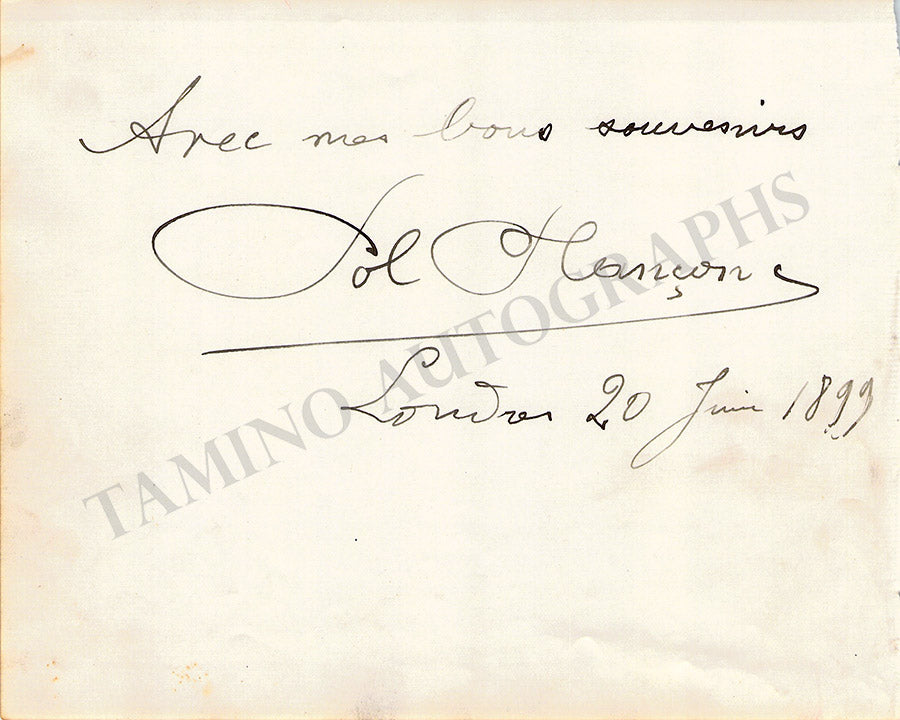 Avec mes bons souvenirs
Pol Plançon
Londres 20 Juin 1899
TAMINO AUTOGRAPHS